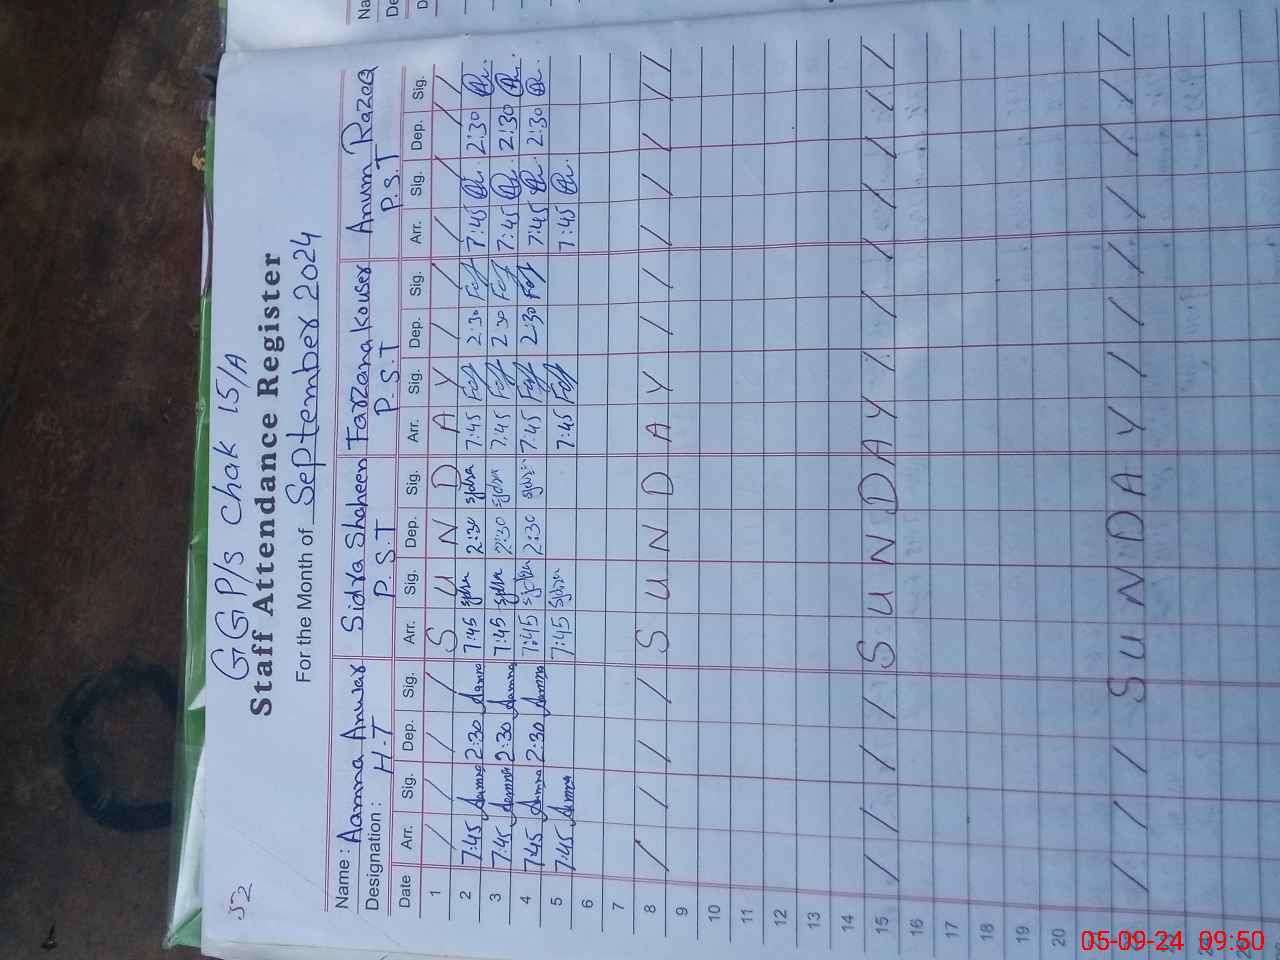 52
GGP/s chak 15/A
Staff Attendance Register
For the Month of September 2024
Name : Aamna Anwar Sidra Shaheen Farzana Kouser Anum Razaq
Designation : H.T P.S.T P.S.T P.S.T
Date Arr. Sig. Dep. Sig. Arr. Sig. Dep. Sig. Arr. Sig. Dep. Sig. Arr. Sig. Dep. Sig.
1 / / / / S U N D A Y / / / / / /
2 7:45 Aamna 2:30 Aamna 7:45 sidra 2:30 sidra 7:45 2:30 7:45 2:30
3 7:45 Aamna 2:30 Aamna 7:45 sidra 2:30 sidra 7:45 2:30 7:45 2:30
4 7:45 Aamna 2:30 Aamna 7:45 sidra 2:30 sidra 7:45 2:30 7:45 2:30
5 7:45 Aamna 7:45 sidra 7:45 7:45
6
7
8 / / / / S U N D A Y / / / / / /
9
10
11
12
13
14
15 / / / / S U N D A Y / / / / / /
16
17
18
19
20
/ / / S U N D A Y / / / / / /
05-09-24 09:50